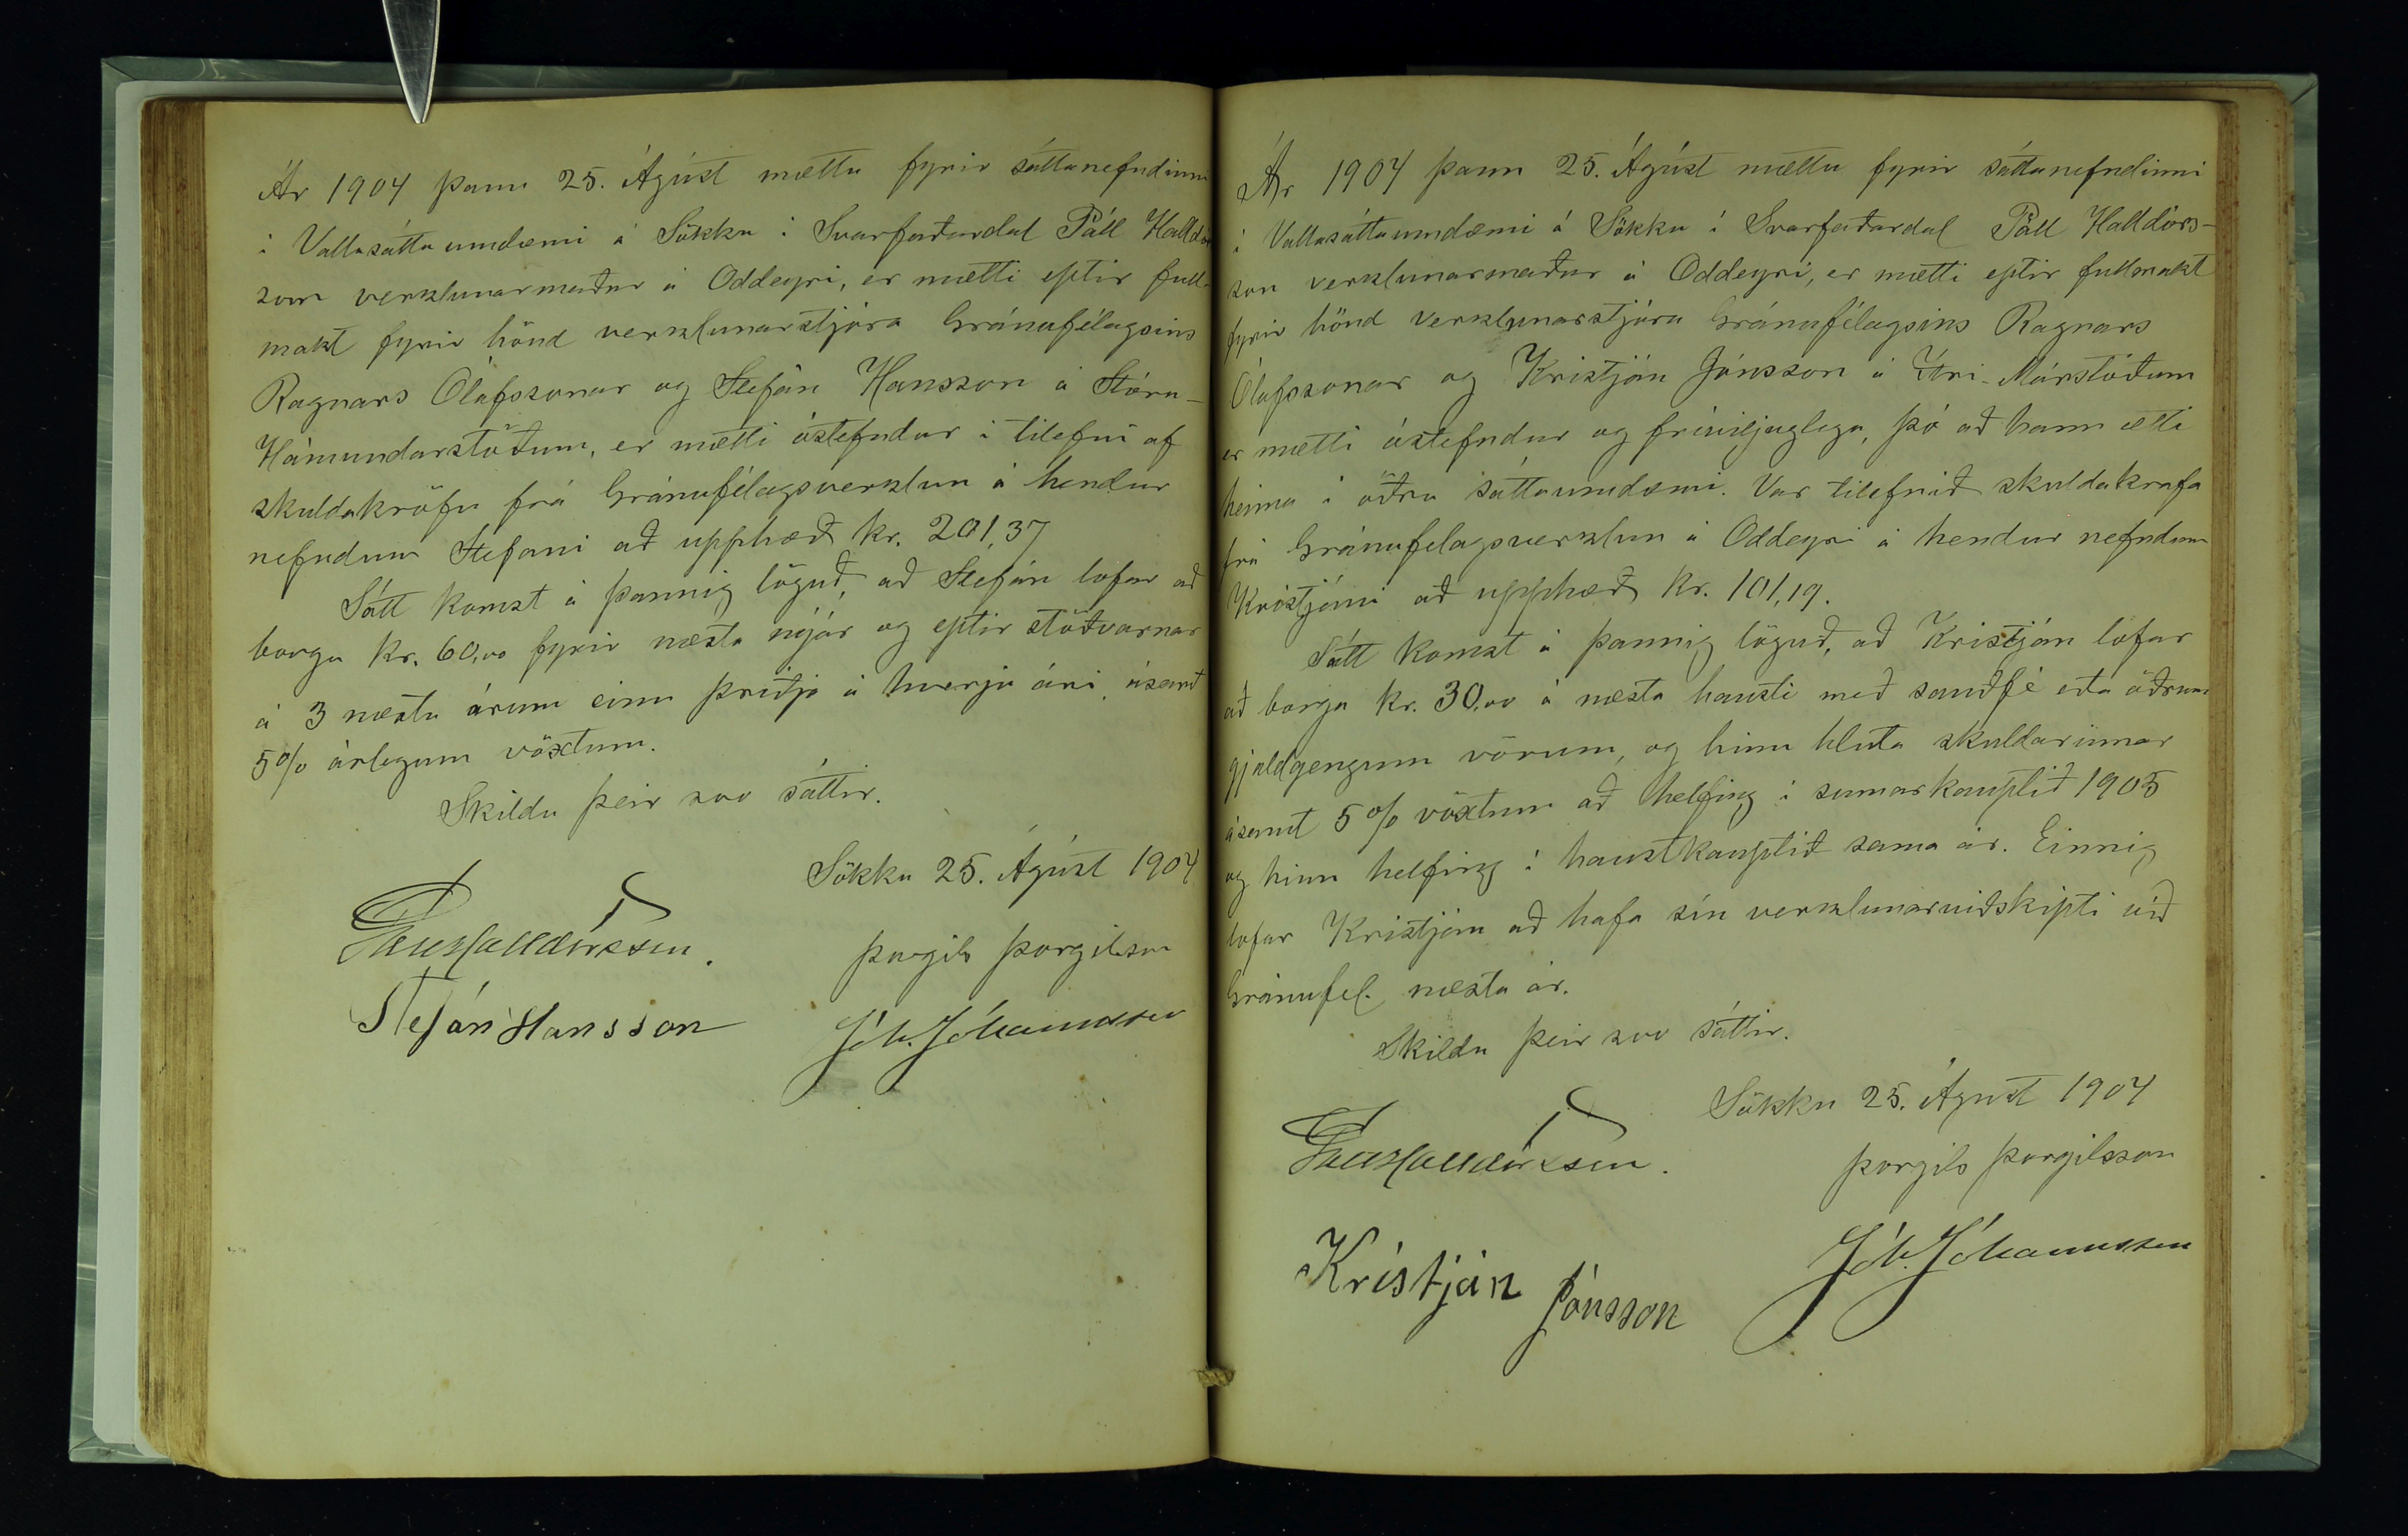 Ár 1904 þann 25. Ágúst mættu fyrir sáttanefndinni
í Vallasáttaumdæmi á Sökku í Svarfaðardal Páll Halldórs
son verzlunarmaður á Oddeyri, er mætti eptir full-
makt fyrir hönd verzlunarstjóra Gránufélagsins
Ragnars Ólafssonar og Stefán Hansson á Stóru-
Hámundarstöðum, er mætti óstefndur í tilefni af
skuldakröfu frá Gránufélagsverzlun á hendur
nefndum Stefani að upphæð kr. 201,37
Sátt komst á þannig löguð, að Stefán lofar að
borga kr. 60,00 fyrir næsta nýár og eptir stöðvarnar
á 3 næstu árum einn þriðja á hverju ári, ásamt
5% árlegum vöxtum.
Skildu þeir svo sáttir.
Sökku 25. Ágúst 1904
Páll Halldórsson.
Þorgils Þorgilsson
Stefán Hansson
Jóh. Jóhannsson
Ár 1904 þann 25. Ágúst mættu fyrir sáttanefndinni
í Vallasáttaumdæmi á Sökku í Svarfaðardal Páll Halldórs-
son verzlunarmaður á Oddeyri, er mætti eptir fullmakt
fyrir hönd verzlunarstjóra Gránufélagsins Ragnars
Ólafssonar og Kristján Jónsson á Ytri-Márstöðum
er mætti óstefndur og fríviljuglega, þó að hann ætti
heima í öðru sáttaumdæmi. Var tilefnið skuldakrafa
frá Gránufelagsverzlun á Oddeyri á hendur nefndum
Kristjáni að upphæð kr. 101,19.
Sátt komst á þannig löguð, að Kristján lofar
að borga kr. 30,00 á næsta hausti með sauðfé eða öðrum
gjaldgengum vörum, og hinn hluta skuldarinnar
ásamt 5% vöxtum að helfing í sumarkauptíð 1905
og hinn helfing í haustkauptíð sama ár. Einnig
lofar Kristján að hafa sín verzlunarviðskipti við
Gránufel. næsta ár.
Skildu þeir svo sáttir.
Sökku 25. Ágúst 1904
Páll Halldórsson.
Þorgils Þorgilsson
Kristján Jónsson
Jóh. Jóhannsson